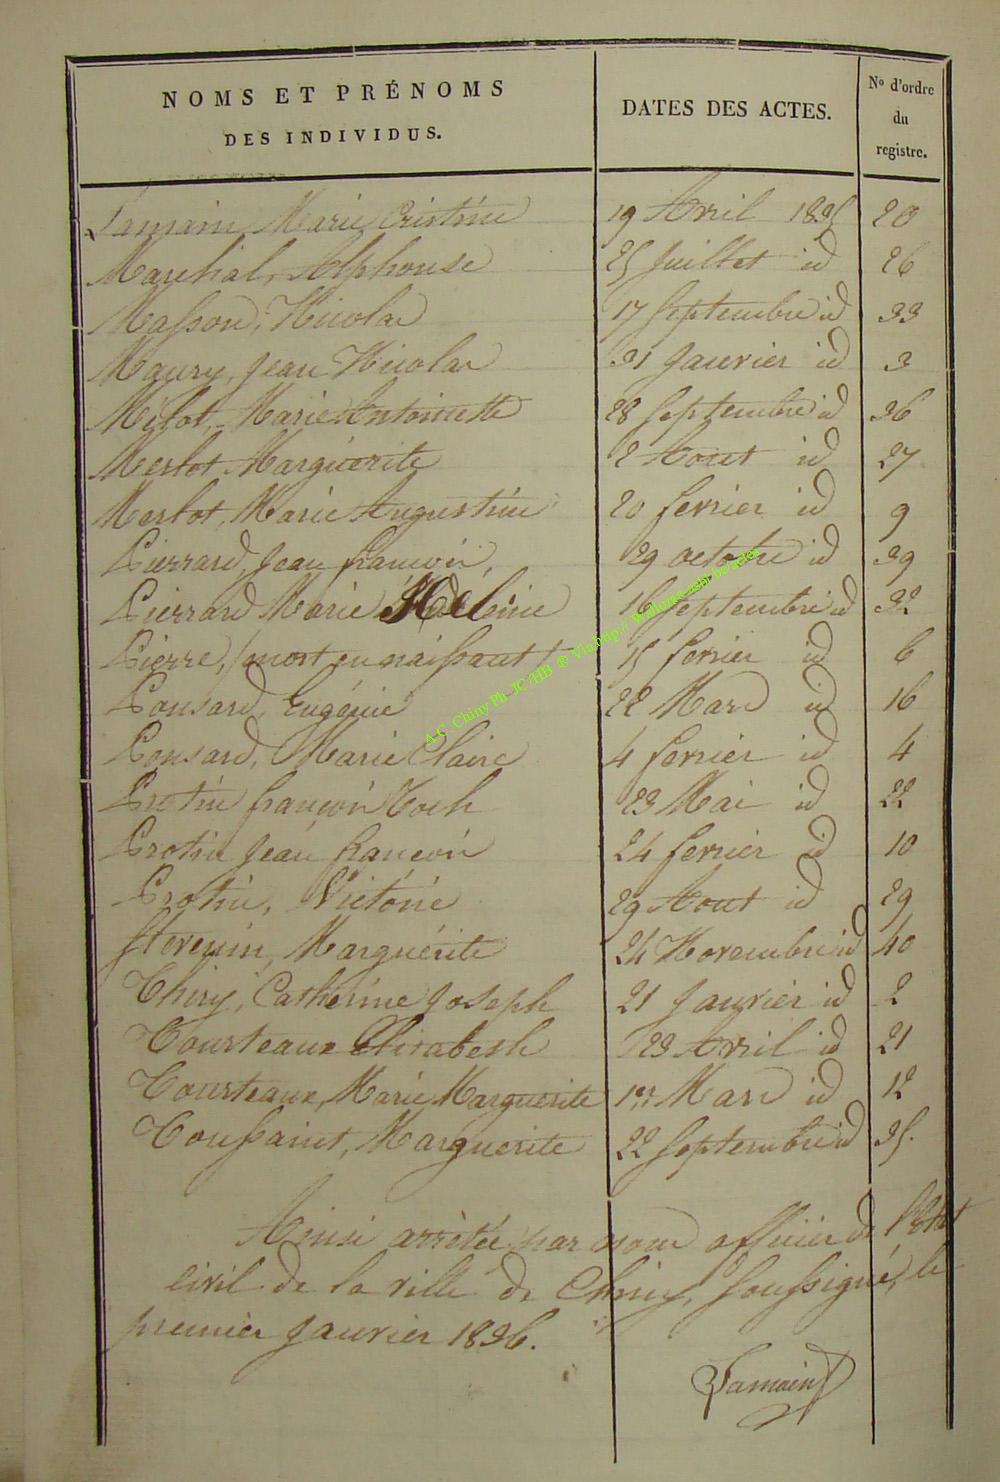 NOMS ET PRÉNOMS DES INDIVIDUS. DATES DES ACTES. No d'ordre du registre.
Lamain Marie Cristine 19 Avril 1835 20
Marchal, Alphonse 25 Juillet id 26
Masson, Nicolas 17 Septembre id 33
Maury, Jean Nicolas 31 Janvier id 3
Mélot, Marie Antoinette 28 Septembre id 36
Merlot Marguérite 2 Aout id 27
Merlot, Marie Augustine 20 fevrier id 9
Pierrard, Jean françois, 29 octobre id 39
Pierrard Marie 16 Septembre id 32
Pierre, (mort en naissant) 15 fevrier id 6
Ponsard, Eugénie 22 Mars id 16
Ponsard, Marie Claire 4 fevrier id 4
Protin françois 23 Mai id 22
Protin Jean françois 24 fevrier id 10
Protin, Victoire 29 Aout id 29
Stevenin, Marguérite 24 Novembre id 40
Thiry, Catherine Joseph 21 Janvier id 2
Tourteaux Elisabeth 23 Avril id 21
Tourteaux, Marie Marguerite 1er Mars id 12
Toussaint, Marguerite 22 Septembre id 35.
Ainsi arrêtée par nous officier de l'Etat
Civil de la ville de Chiny, Soussigné, le
premier Janvier 1836.
Lamain
A.C. Chiny Ph. JC/HB ® Via http://